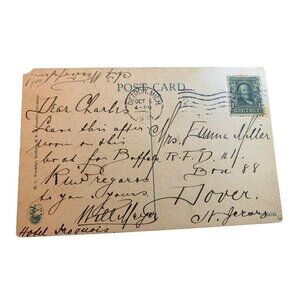 POST CARD
DETROIT, MICH.
OCT
4-PM
Dear Charlie
Leave this after
noon on this
boat for Buffalo
Kind regards
to you. Yours
Will Meyer
Hotel Iroquois
Mrs. Emma Miller
R.F.D. #1
Box 88
Dover
N. Jersey